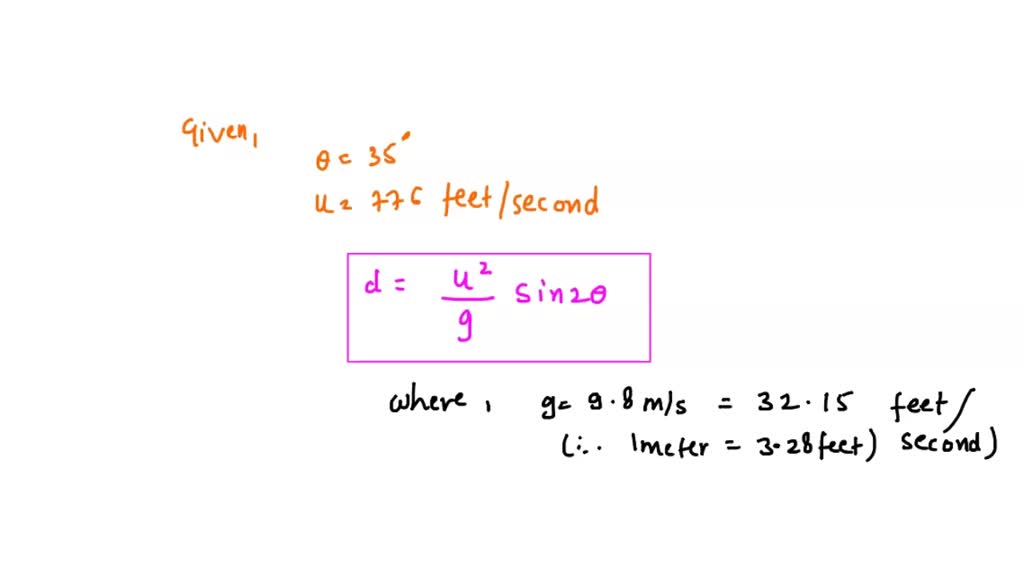 Given,
θ = 35°
u = 776 feet/second
d = u²/g sin2θ
where, g = 9.8 m/s = 32.15 feet/
(∴ 1 meter = 3.28 feet) second)